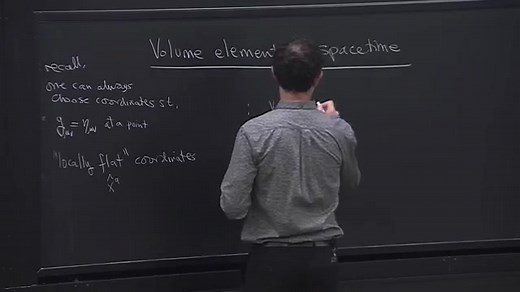 Volume element spacetime
recall.
one can always
choose coordinates s.t.
g_{μν} = η_{μν} at a point
"locally flat" coordinates
x̂^a